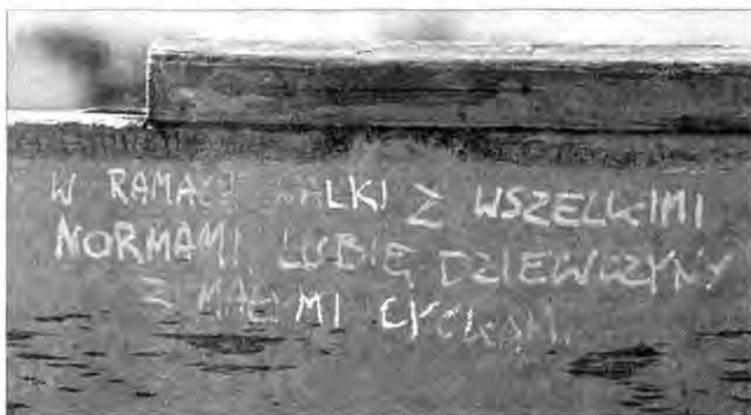 W RAMACH WALKI Z WSZELKIMI
NORMAMI LUBIĘ DZIEWCZYNY
Z MAŁYMI CYCKAMI.